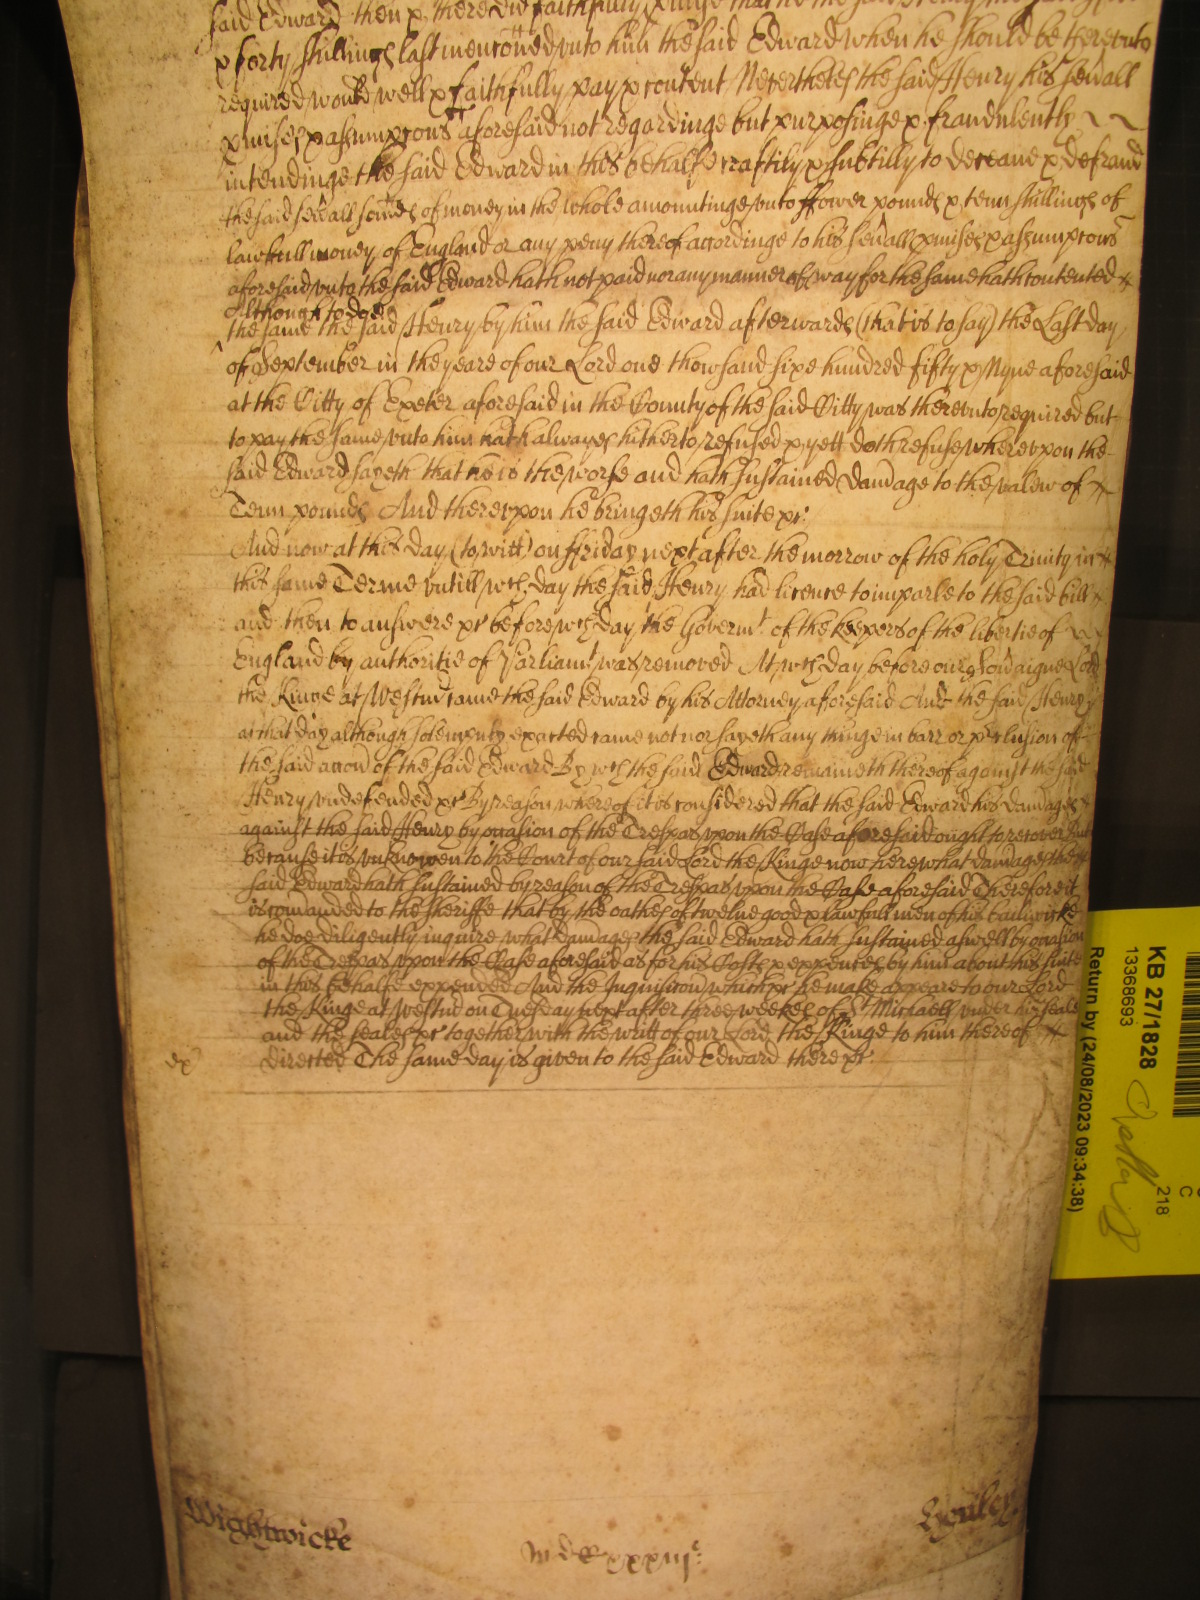 said Edward then & there did faithfully p̱mise that he the said
& forty shillings last menc̃oned vnto him the said Edward when he should be therevnto
required would well & faithfully pay & content Neverthelesse the said Henry his sev̄all
p̱mises & assumpc̃ons aforesaid not regardinge but purposinge & fraudulently
intendinge the said Edward in this behalfe craftily & subtilly to deceaue & defraud
the said sev̄all som̄es of money in the whole amountinge vnto ffower pounds & tenn shillings of
lawfull money of England or any peny thereof accordinge to his sev̄all p̱mises & assumpc̃ons
aforesaid vnto the said Edward hath not paid nor any manner of way for the same hath contented
Although to doe
the same the said Henry by him the said Edward afterwards (that is to say) the Last day
of September in the yeare of our Lord one thowsand sixe hundred fifty & Nyne aforesaid
at the Citty of Exeter aforesaid in the County of the said Citty was therevnto required but
to pay the same vnto him hath alwayes hitherto refused & yett doth refuse wherevpon the
said Edward sayeth that he is the worse and hath sustained damage to the valew of
Tenn pounds And therevpon he bringeth his suite &c
And now at this day (to witt) on ffriday next after the morrow of the holy Trinity in
this same Terme vntill wch day the said Henry had licence to imparle to the said bill
and then to answere &c before wch day the Governmt of the keepers of the libertie of
England by authoritie of Parliamt was removed At wch day before our Sov̄aigne Lord
the Kinge at Westm̄ came the said Edward by his Attorney aforesaid And the said Henry
at that day although solempnly exacted came not nor sayeth any thinge in barr or p̱clusion of
the said acc̃on of the said Edward By wch the said Edward remaineth thereof against the said
Henry vndefended &c By reason whereof it is considered that the said Edward his damages
against the said Henry by occasion of the Trespas vpon the Case aforesaid ought to recover But
because it is vnknowen to the Court of our said Lord the Kinge now here what damages the
said Edward hath sustained by reason of the Trespas vpon the Case aforesaid Therefore it
is com̄anded to the sheriffe that by the oathes of twelue good & lawfull men of his bailiwicke
he doe diligently inquire what damages the said Edward hath sustained aswell by occasion
of the Trespas vpon the Case aforesaid as for his Costs & expences by him about his suite
in this behalfe expended And the Inquisic̃on which &c he make appeare to our Lord
the Kinge at Westm̄ on Tuesday next after three weekes of St Michaell vnder his seale
and the seales &c together with the writt of our Lord the Kinge to him thereof
directed The same day is given to the said Edward there &c
ex
Wightwicke
Henley
KB 27/1828
13368693
Return by (24/08/2023 09:34:38)
218
C